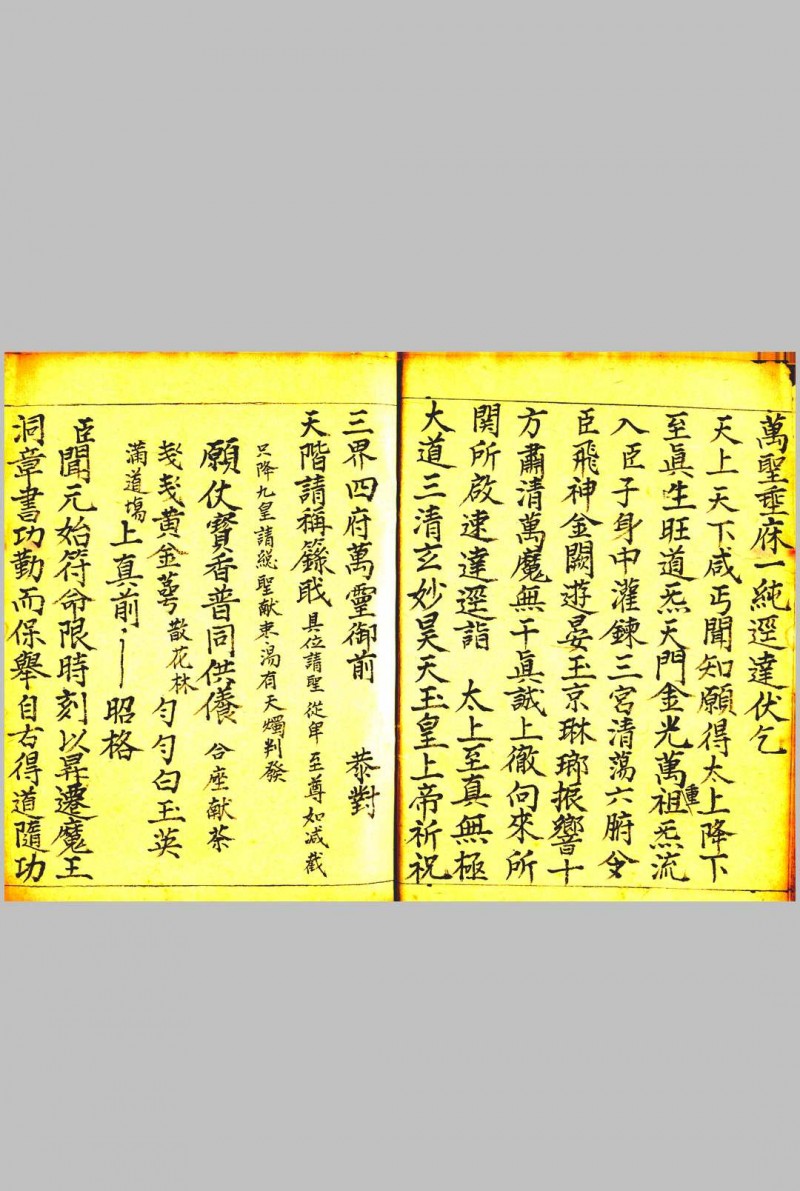 萬聖垂庥一純逕達伏乞
天上天下咸丐聞知願得太上降下
至眞生旺道炁天門金光萬祖重炁流
入臣子身中灌鍊三宮清蕩六腑令
臣飛神金闕遊晏玉京琳瑯振響十
方肅清萬魔無干眞誠上徹向來所
関所啟速達逕詣 太上至真無極
大道三清玄妙昊天玉皇上帝祈祝
三界四府萬靈御前 恭對
天階請稱籙職 具位請聖從卑至尊如減截
只降九皇請総聖献枣湯有天燭判發
願仗寳香普同供養 合座献茶
戔戔黄金蕚 散花林 勻勻白玉英
滿道場 上真前 昭格
臣聞元始符命限時刻以昇遷魔王
洞章書功勤而保舉自古得道隨功